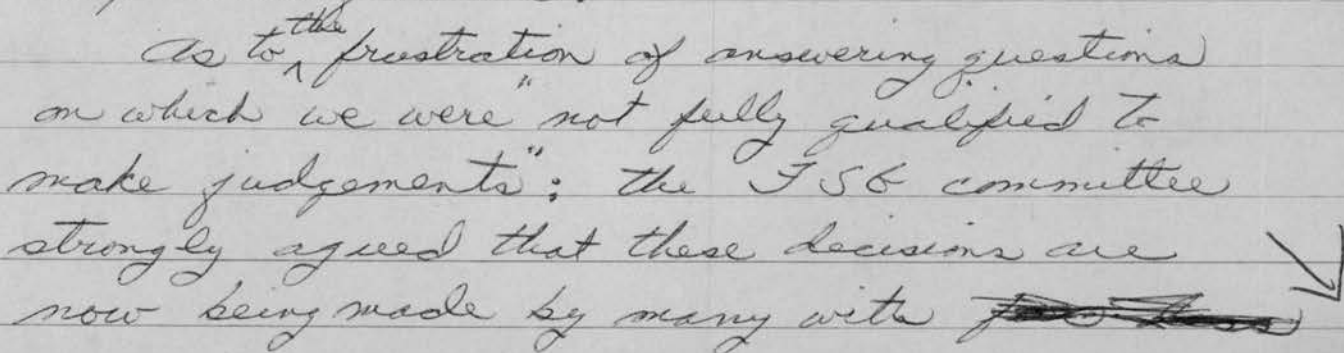 As to the frustration of answering questions
on which we were "not fully qualified to
make judgements"; the FSG committee
strongly agreed that these decisions are
now being made by many with